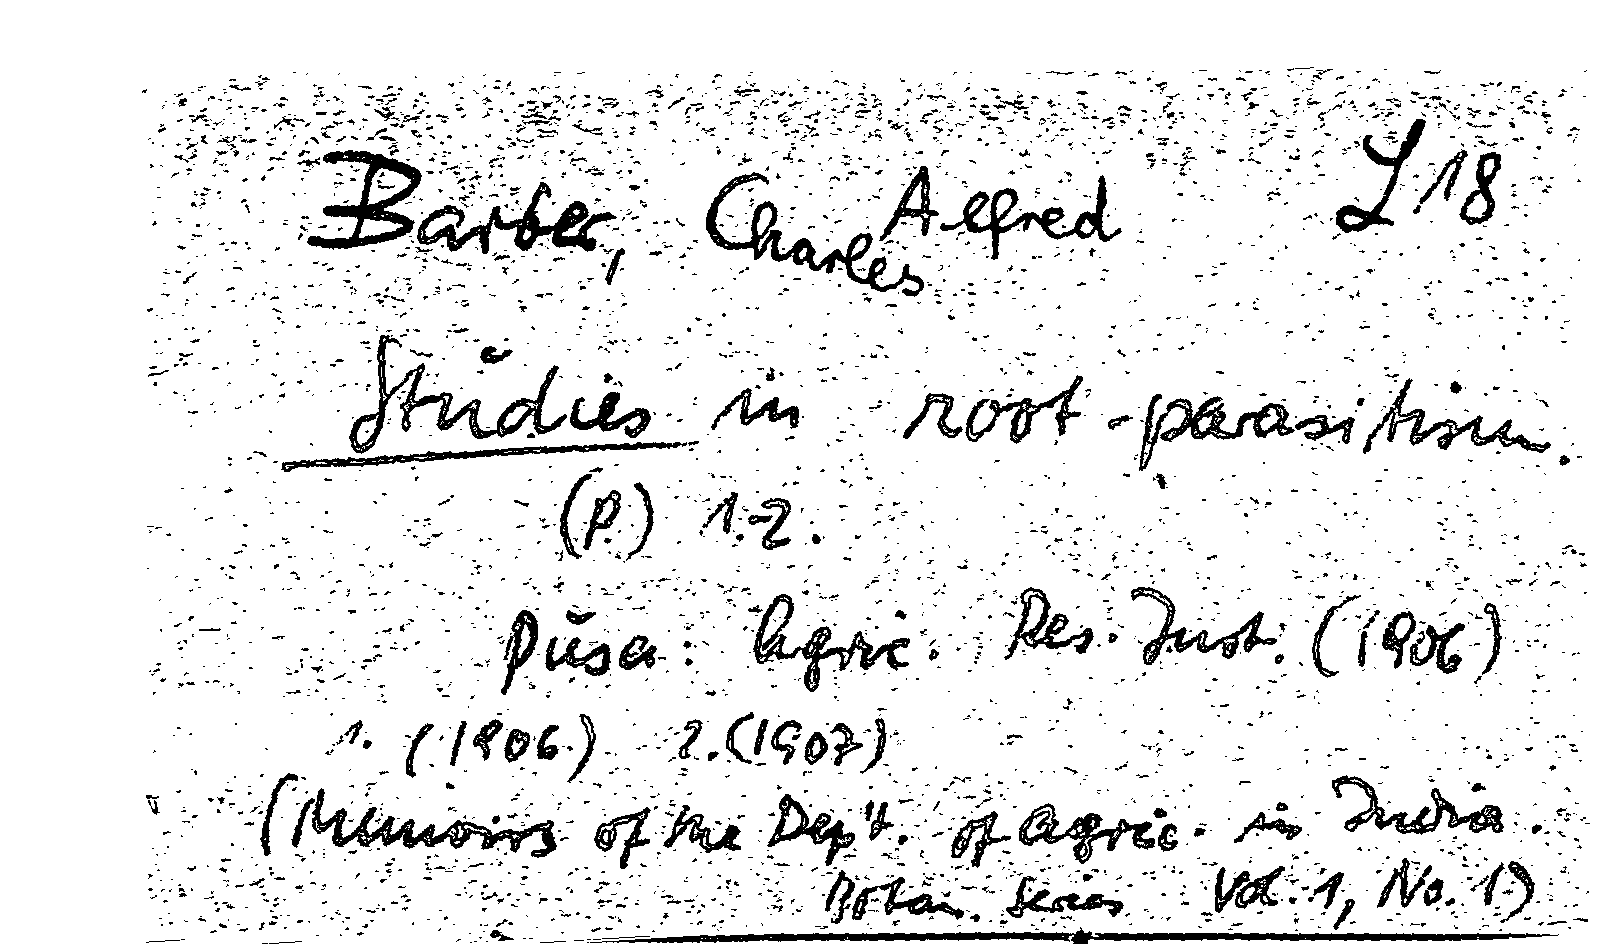 Barber, Charles Alfred L 18
Studies in root-parasitism.
(P.) 1.-2.
Pusa: Agric. Res. Inst. (1906)
1. (1906) 2. (1907)
(Memoirs of the Dep't. of Agric. in India.
Botan. Series Vol. 1, No. 1)